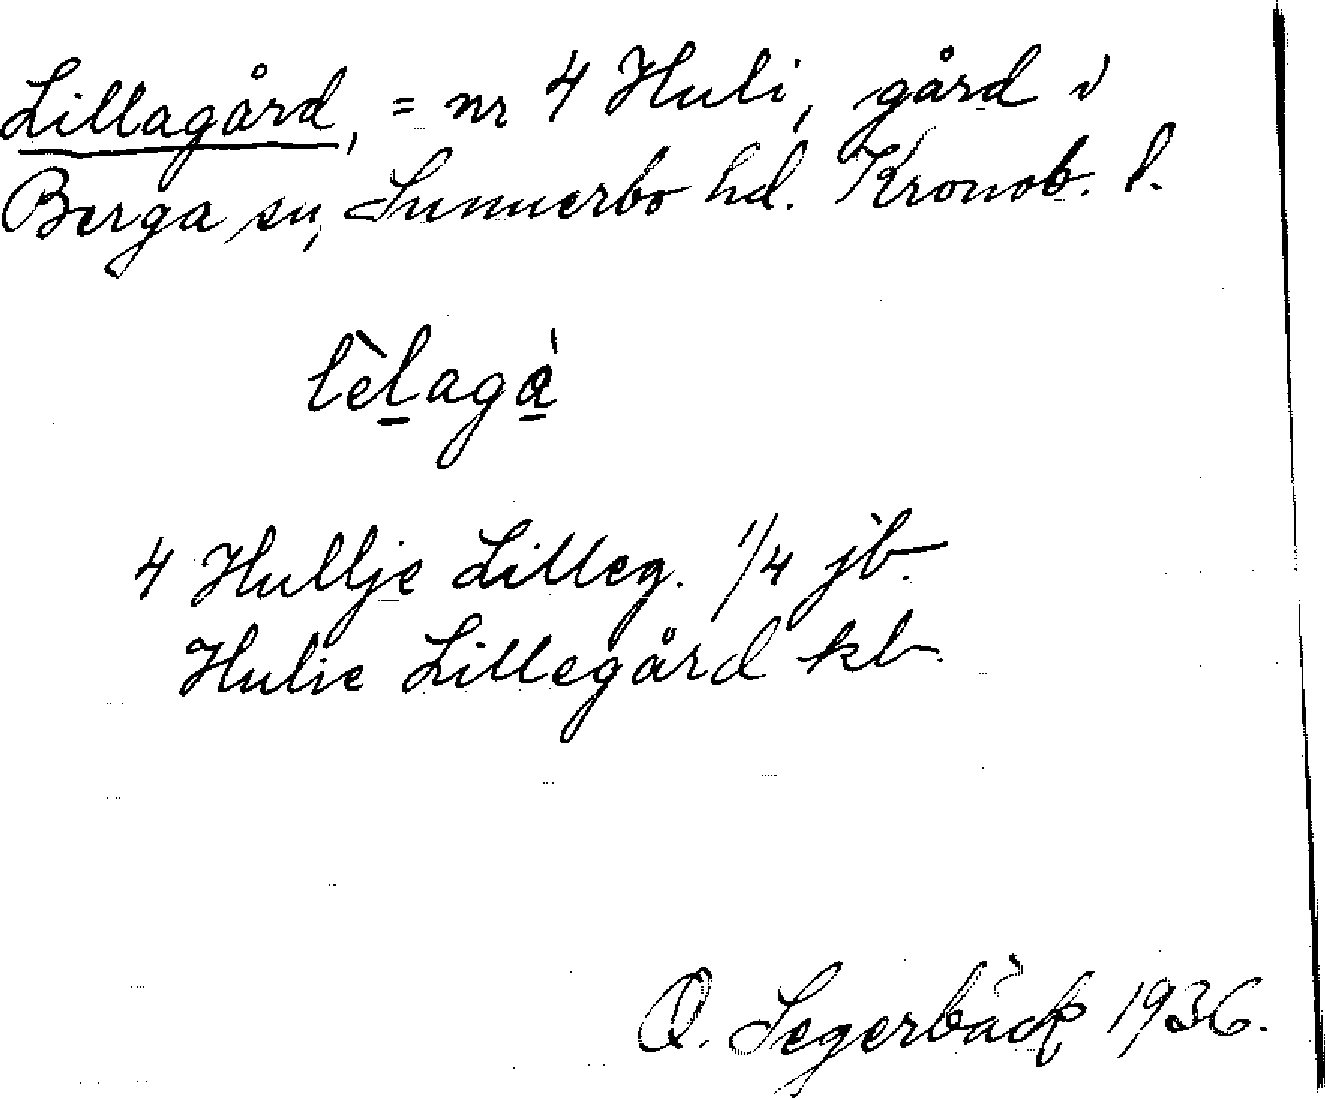 Lillagård, = nr 4 Huli, gård i
Berga sn, Sunnerbo hd. Kronob. l.
lèlagà
4 Hullje Lilleg. 1/4 jb.
Hulie Lillegård kb.
O. Segerbäck 1936.